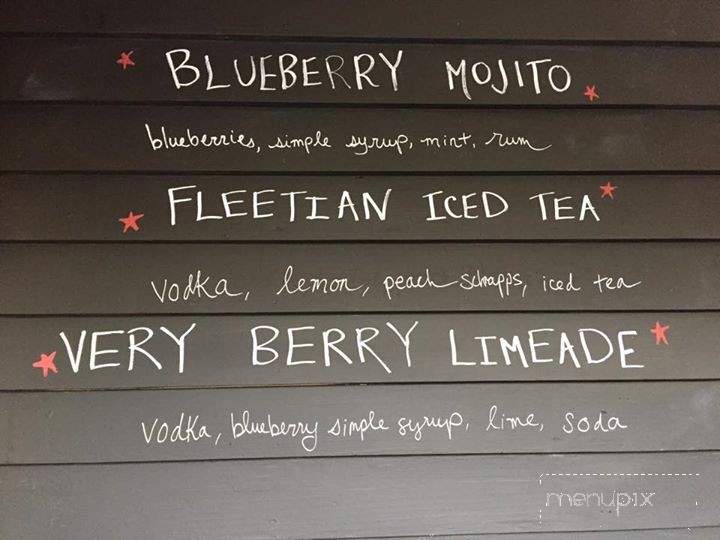 BLUEBERRY MOJITO
blueberries, simple syrup, mint, rum
FLEETIAN ICED TEA
vodka, lemon, peach schnapps, iced tea
VERY BERRY LIMEADE
vodka, blueberry simple syrup, lime, soda
menupix